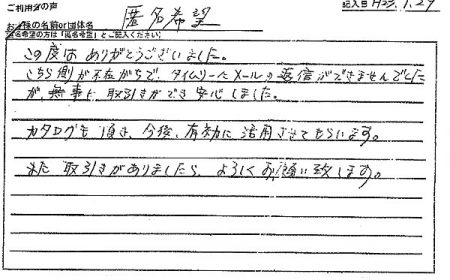 ご利用者の声
記入日 H23.1.29
お客様の名前or団体名 匿名希望
(匿名希望の方は「匿名希望」とご記入ください)
この度は ありがとうございました。
こちら側が不在がちで、タイムリーにメールの返信ができませんでした
が、無事に取引きができ安心しました。
カタログも頂き、今後、有効に活用させてもらいます。
また取引きがありましたら、よろしくお願い致します。